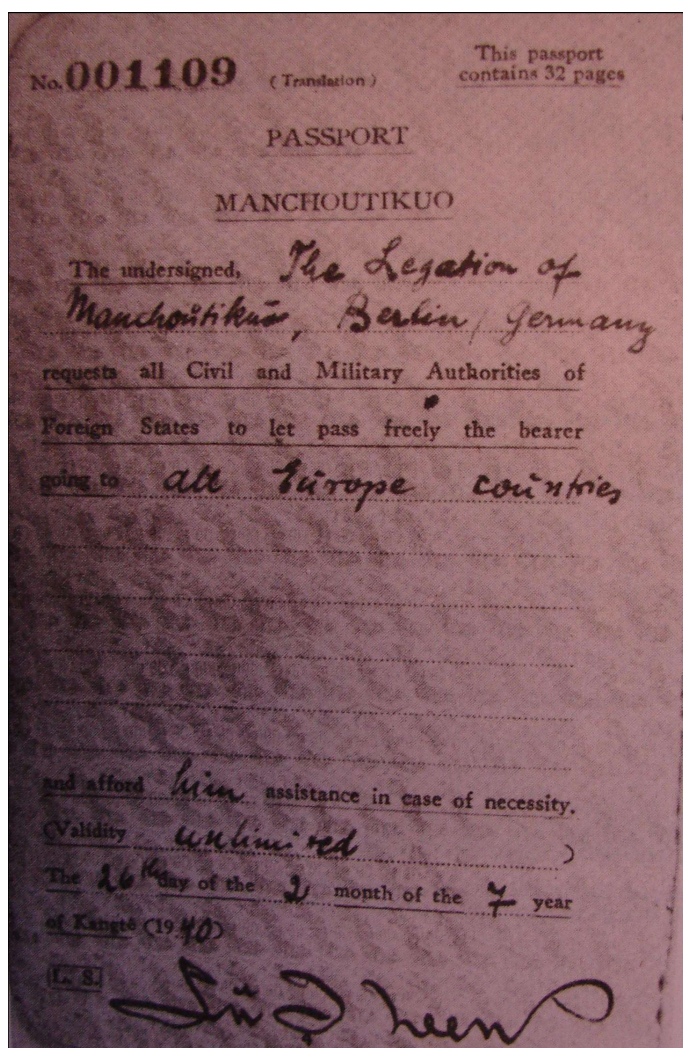 No. 001109 (Translation) This passport
contains 32 pages
PASSPORT
MANCHOUTIKUO
The undersigned, The Legation of
Manchoŭtikŭo, Berlin, Germany
requests all Civil and Military Authorities of
Foreign States to let pass freely the bearer
going to all Eŭrope coŭntries
and afford him assistance in case of necessity.
(Validity ŭnlimired )
The 26th day of the 2 month of the 7 year
of Kangtê (1940)
L. S.